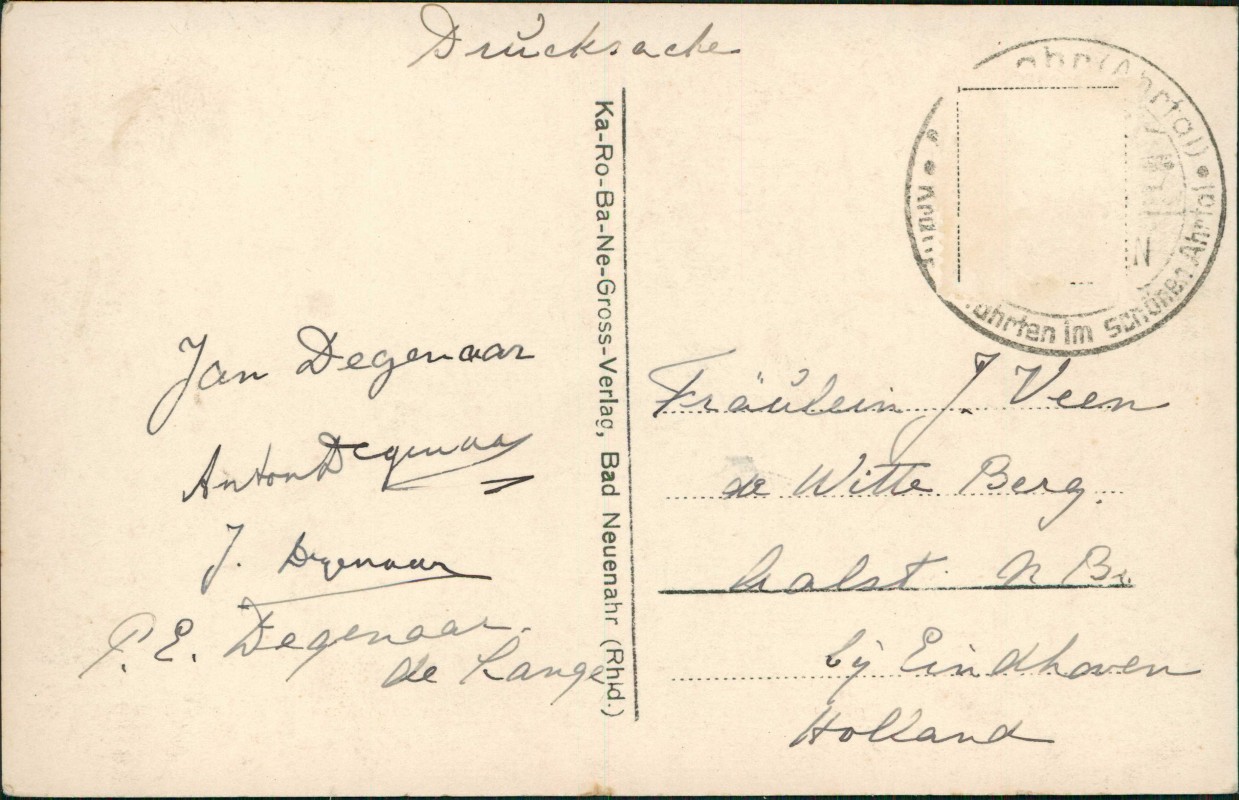 Drucksache
ahr (Ahrtal)
fahrten im schönen Ahrtal
N
Ka-Ro-Ba-Ne-Gross-Verlag, Bad Neuenahr (Rhld.)
Jan Degenaar
Anton Degenaar
J. Degenaar
P.E. Degenaar.
de Lange
Fräulein J. Veen
de Witte Berg.
Aalst N Br.
bij Eindhoven
Holland